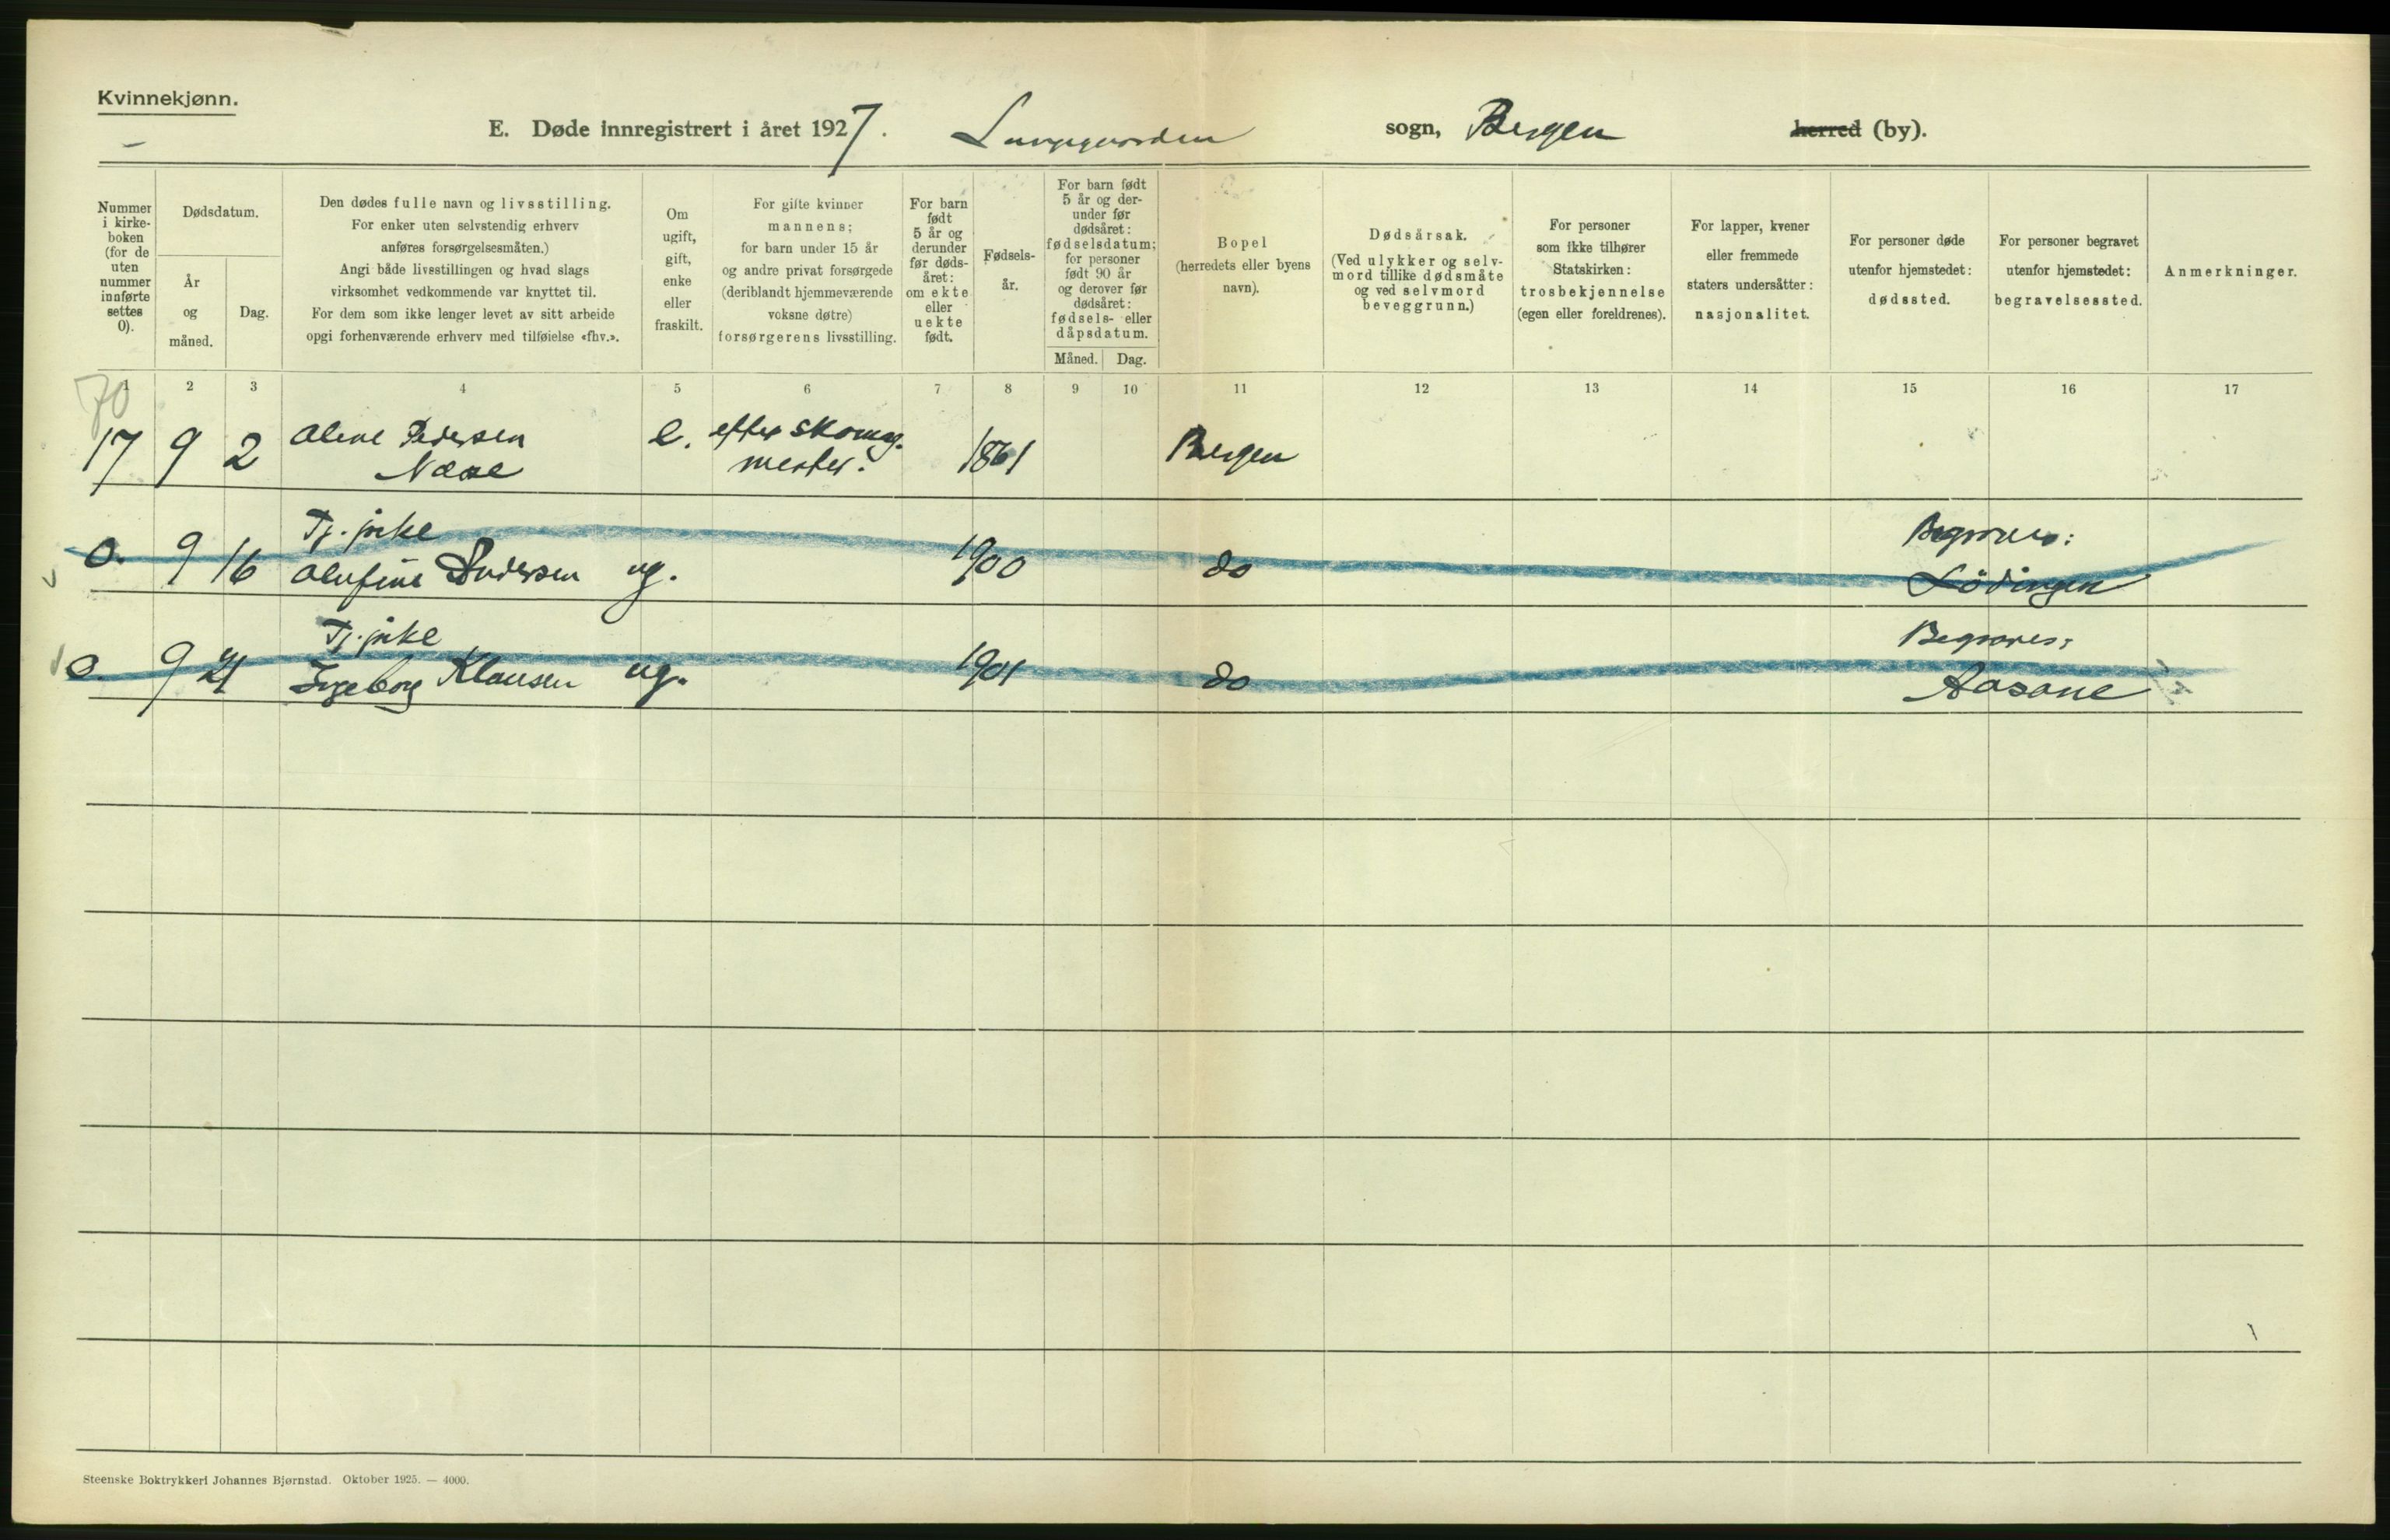 Kvinnekjønn.
E. Døde innregistrert i året 1927. Lungegaarden sogn, Bergen herred (by).
Nummer i kirke-boken (for de uten nummer innførte settes 0).
Dødsdatum.
År og måned.
Dag.
Den dødes fulle navn og livsstilling.
For enker uten selvstendig erhverv
anføres forsørgelsesmåten.)
Angi både livsstillingen og hvad slags
virksomhet vedkommende var knyttet til.
For dem som ikke lenger levet av sitt arbeide
opgi forhenværende erhverv med tilføielse «fhv.».
Om
ugift,
gift,
enke
eller
fraskilt.
For gifte kvinner
mannens;
for barn under 15 år
og andre privat forsørgede
(deriblandt hjemmeværende
voksne døtre)
forsørgerens livsstilling.
For barn
født
5 år og
derunder
før døds-
året:
om ekte
eller
uekte
født.
Fødsels-
år.
For barn født
5 år og der-
under før
dødsåret:
fødselsdatum;
for personer
født 90 år
og derover før
dødsåret:
fødsels- eller
dåpsdatum.
Måned. Dag.
Bopel
(herredets eller byens
navn).
Dødsårsak.
(Ved ulykker og selv-
mord tillike dødsmåte
og ved selvmord
beveggrunn.)
For personer
som ikke tilhører
Statskirken:
trosbekjennelse
(egen eller foreldrenes).
For lapper, kvener
eller fremmede
staters undersåtter:
nasjonalitet.
For personer døde
utenfor hjemstedet:
dødssted.
For personer begravet
utenfor hjemstedet:
begravelsessted.
Anmerkninger.
1 2 3 4 5 6 7 8 9 10 11 12 13 14 15 16 17
70
17 9 2 Oline Pedersen e. efter skomag. 1861 Bergen
mester.
Tj. pike Begraves:
0. 9 16 Olufine Andersen ug. 1900 do Lödingen
Tj. pike Begraves:
0. 9 21 Ingeborg Klausen ug. 1901 do Aasane
Steenske Boktrykkeri Johannes Bjørnstad. Oktober 1925. — 4000.